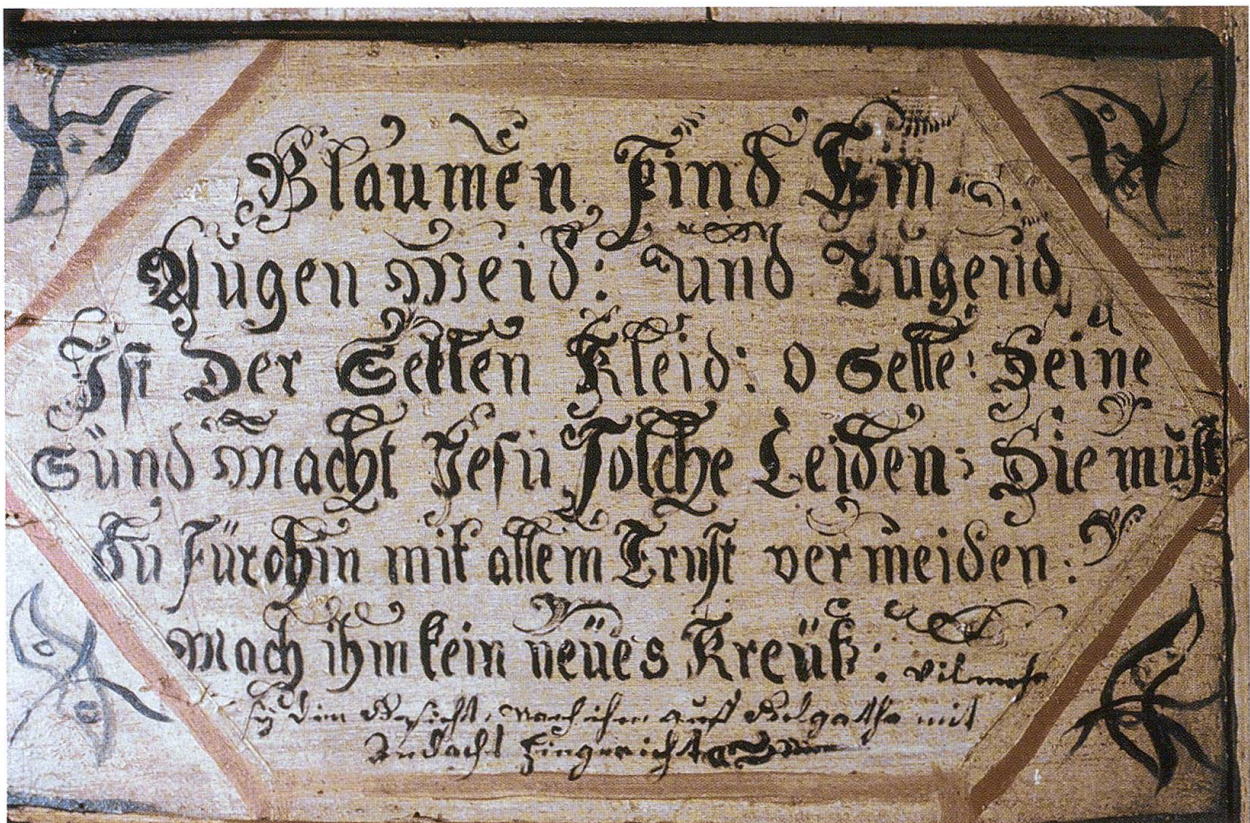 Blaumen, sind Ein
Augen weid: und Tugend
Ist der Sellen Kleid: O Selle: Deine
Sünd macht Jesu solche Leiden: Die must
Du fürohin mit allem Ernst vermeiden:
Mach ihm kein neües Kreütz: vilmehr
sy dein Gesicht, nach ihm auf Golgatha mit
Andacht hingericht